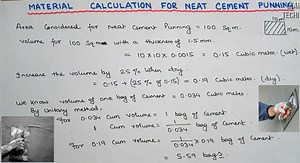 MATERIAL CALCULATION FOR NEAT CEMENT PUNNING
Area Considered for Neat Cement Punning = 100 Sq.m.
Volume for 100 Sq.m with a thickness of 1.5 mm.
= 10 x 10 x 0.0015 = 0.15 Cubic meter. (wet)
Increase the volume by 25% when dry
= 0.15 + (25% of 0.15) = 0.19 Cubic meter. (dry).
We know volume of one bag of Cement = 0.034 Cubic meter.
By Unitary method:
For 0.034 Cum Volume = 1 bag of Cement.
1 Cum Volume = 1/0.034 bag of Cement.
For 0.19 Cum Volume = 1/0.034 x 0.19 bag of Cement.
= 5.59 bags